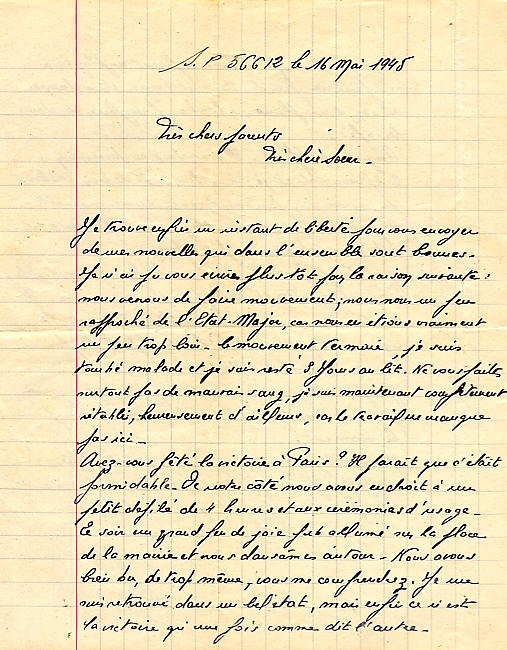 S.P 56612 le 16 Mai 1945
Très chers parents
Très chère Soeur -
Je trouve enfin un instant de liberté pour vous envoyer
de mes nouvelles qui dans l'ensemble sont bonnes -
Je n'ai pu vous écrire plus tôt pour la raison suivante :
nous venons de faire mouvement ; nous nous un peu
rapproché de l'Etat-Major, car nous en étions vraiment
un peu trop loin - le mouvement terminé, je suis
tombé malade et je suis resté 8 jours au lit. Ne vous faites
surtout pas de mauvais sang, je suis maintenant complètement
rétabli, heureusement d'ailleurs, car le travail ne manque
pas ici -
Avez-vous fêté la victoire à Paris ? Il parait que c'était
formidable - De notre côté nous avons eu droit à un
petit défilé de 4 heures et aux cérémonies d'usage -
Le soir un grand feu de joie fut allumé sur la place
de la mairie et nous dansâmes autour - Nous avons
bien bu, de trop même, vous me comprendrez. Je me
suis retrouvé dans un bel état, mais enfin ce n'est
la victoire qu'une fois comme dit l'autre -